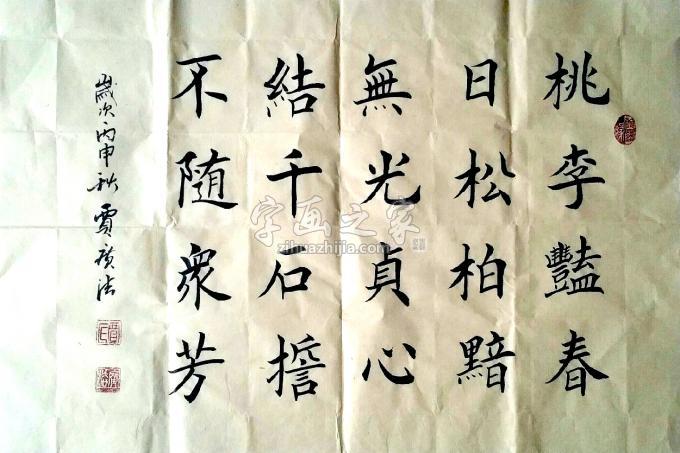 桃李豔春
日松柏黯
無光貞心
結千石擔
不随眾芳
歲次丙申秋賈廣法
字画之家
zihuazhijia.com